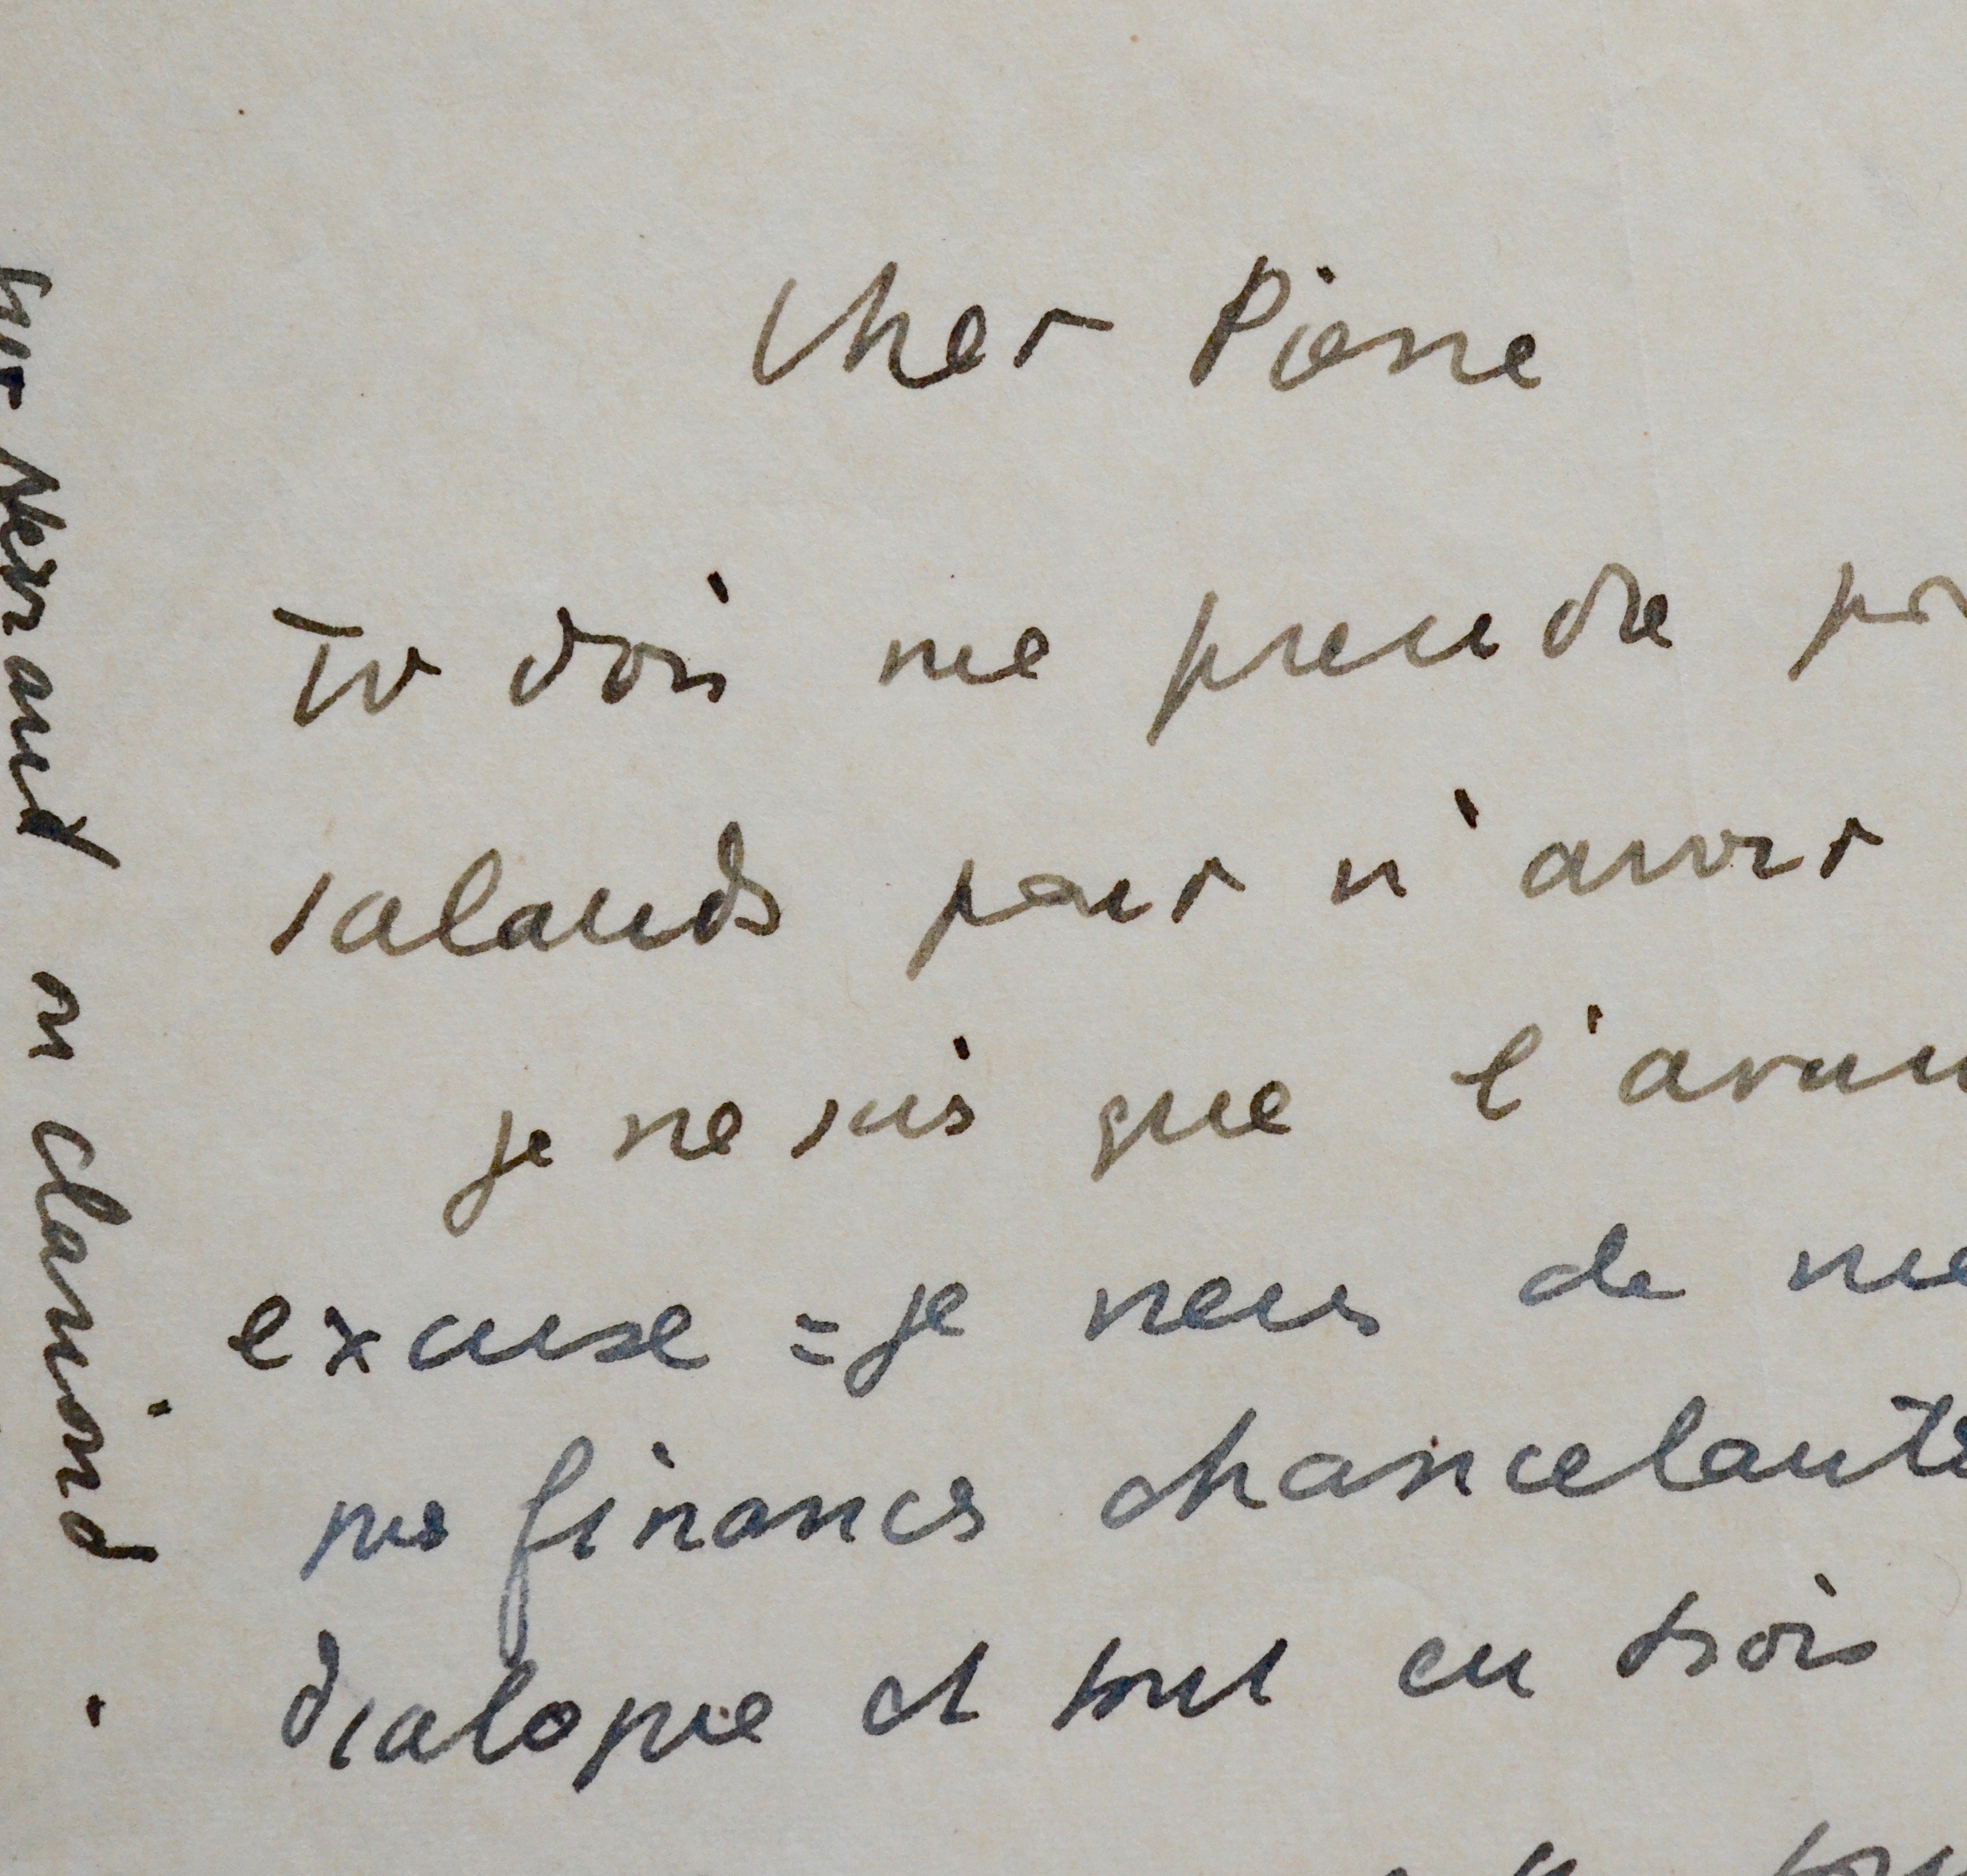 Cher Pierre
Tu dois me prendre
salauds pour n'avoir
je ne suis que l'avan
excuse = je viens de me
mes finances chancelantes
dialogue et tout en trois
on Clarion